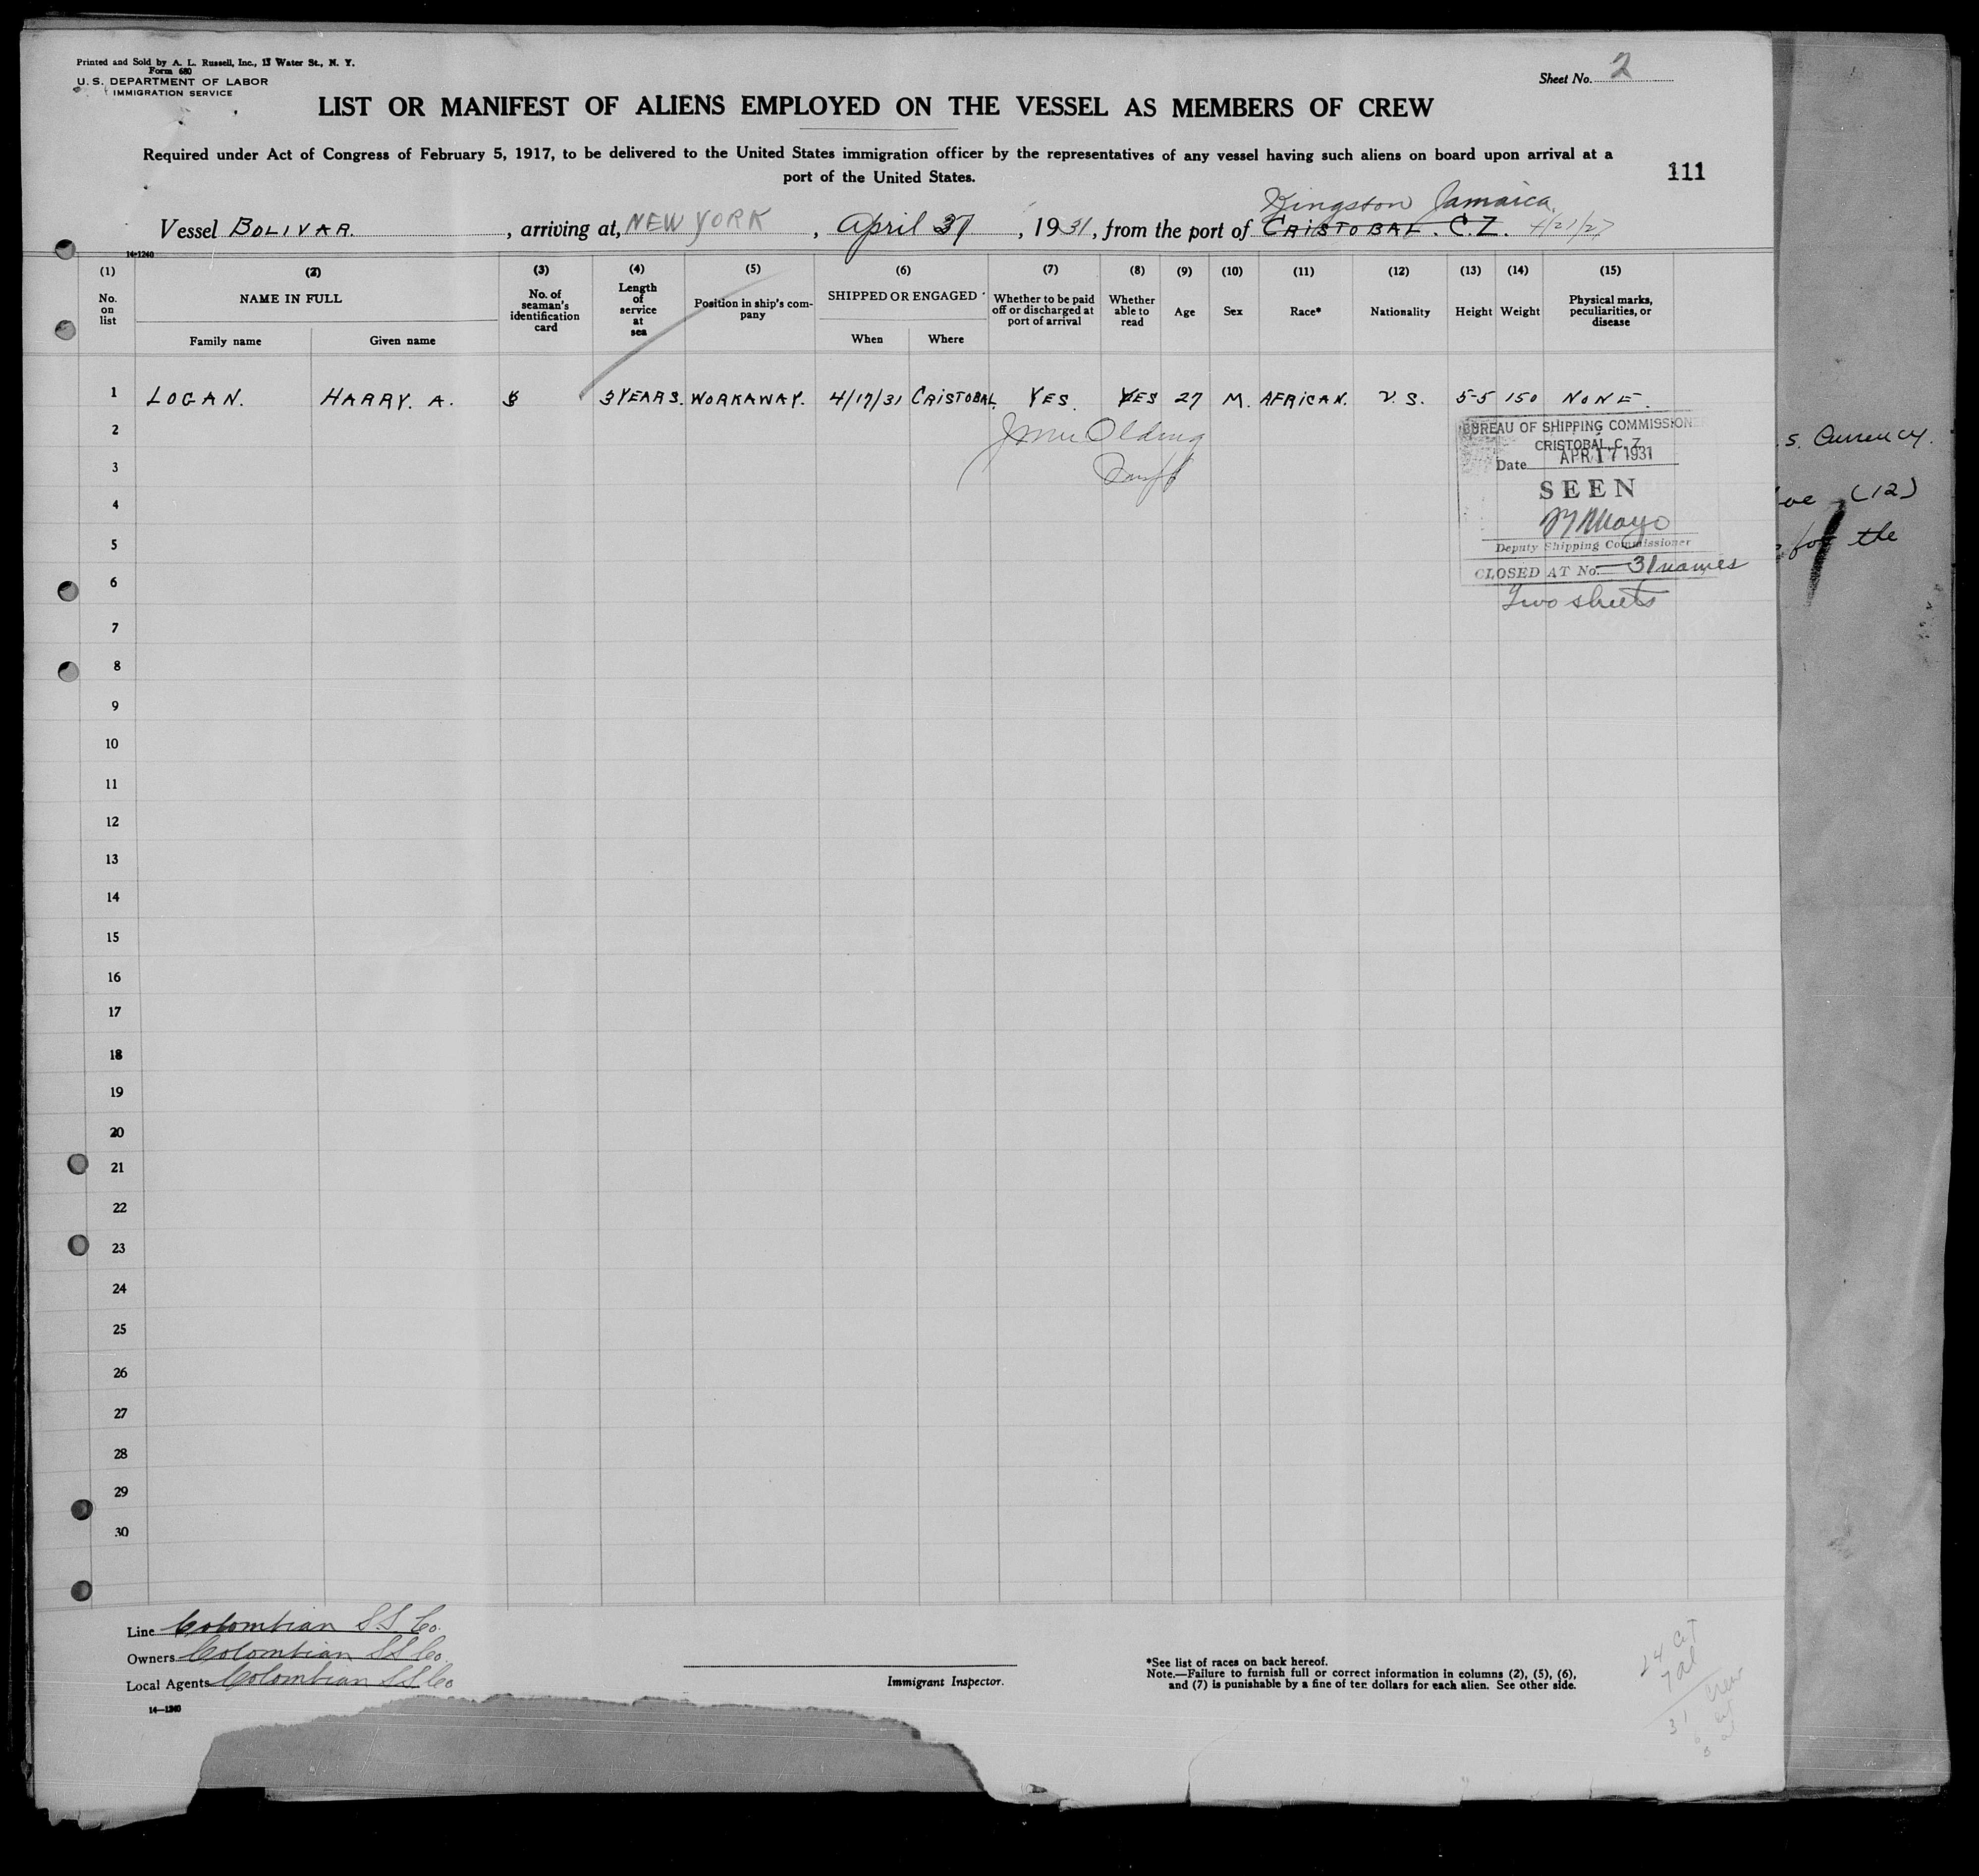 Printed and Sold by A. L. Russell, Inc., 13 Water St., N. Y.
Form 680
U. S. DEPARTMENT OF LABOR
IMMIGRATION SERVICE
Sheet No. 2
LIST OR MANIFEST OF ALIENS EMPLOYED ON THE VESSEL AS MEMBERS OF CREW
Required under Act of Congress of February 5, 1917, to be delivered to the United States immigration officer by the representatives of any vessel having such aliens on board upon arrival at a
port of the United States.
111
Kingston Jamaica
Vessel BOLIVAR. , arriving at, NEW YORK , April 27 , 1931, from the port of CRISTOBAL. C.Z. 4/21/27
14-1240
(1) (2) (3) (4) (5) (6) (7) (8) (9) (10) (11) (12) (13) (14) (15)
No. on list
NAME IN FULL
Family name
Given name
No. of seaman's identification card
Length of service at sea
Position in ship's company
SHIPPED OR ENGAGED
When
Where
Whether to be paid off or discharged at port of arrival
Whether able to read
Age
Sex
Race*
Nationality
Height
Weight
Physical marks, peculiarities, or disease
1 LOGAN. HARRY. A. 3 YEARS. WORKAWAY. 4/17/31 CRISTOBAL. YES. YES 27 M. AFRICAN. U.S. 5-5 150 NONE.
2
3
4
5
6
7
8
9
10
11
12
13
14
15
16
17
18
19
20
21
22
23
24
25
26
27
28
29
30
BUREAU OF SHIPPING COMMISSIONE
CRISTOBAL, C. Z.
Date APR 17 1931
SEEN
Mayo
Deputy Shipping Commissioner
CLOSED AT No. 31 names
Two sheets
s. Currency.
(12)
for the
Line Colombian S.S. Co.
Owners Colombian S S Co.
Local Agents Colombian S S Co
14—1240
Immigrant Inspector.
*See list of races on back hereof.
Note.—Failure to furnish full or correct information in columns (2), (5), (6),
and (7) is punishable by a fine of ten dollars for each alien. See other side.
24 Cit
7 al
31 Crew